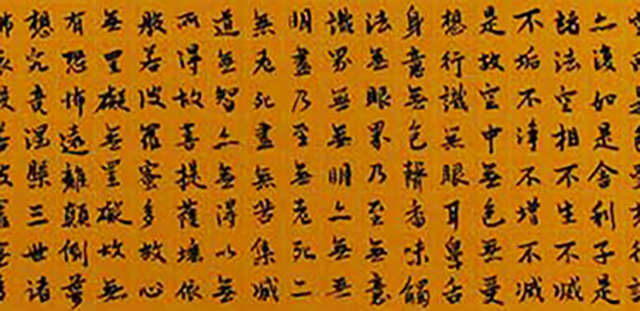 亦復如是舍利子是
諸法空相不生不滅
不垢不淨不增不減
是故空中無色無受
想行識無眼耳鼻舌
身意無色聲香味觸
法無眼界乃至無意
識界無無明亦無無
明盡乃至無老死亦
無老死盡無苦集滅
道無智亦無得以無
所得故菩提薩埵依
般若波羅蜜多故心
無罣礙無罣礙故無
有恐怖遠離顛倒夢
想究竟涅槃三世諸